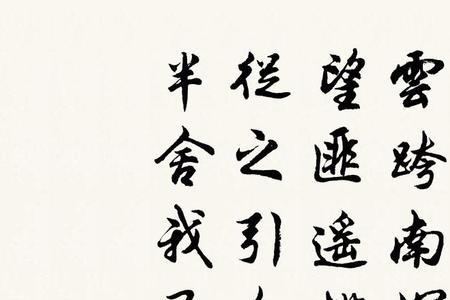 雲跨南
望匪遥
從之引
半舍我